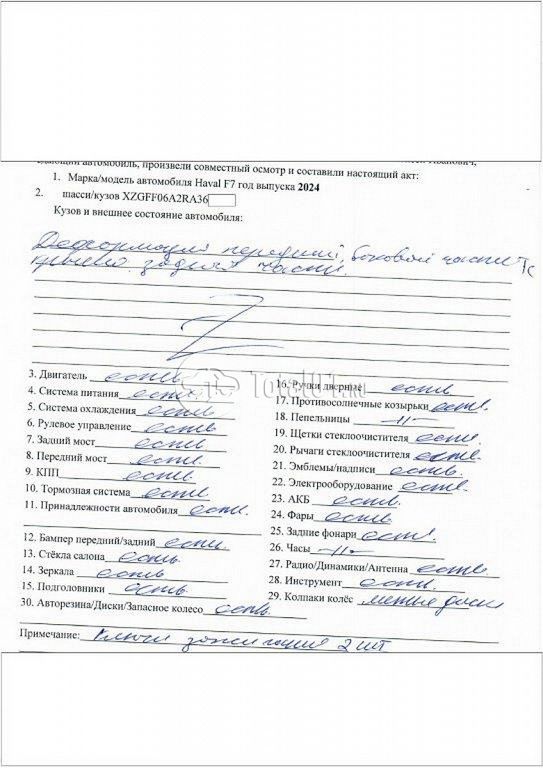 автомобиль, произвели совместный осмотр и составили настоящий акт:
1. Марка/модель автомобиля Haval F7 год выпуска 2024
2. шасси/кузов XZGFF06A2RA36
Кузов и внешнее состояние автомобиля:
Деформация передний, боковой части ТС
крыша, задняя части.
3. Двигатель есть
4. Система питания есть
5. Система охлаждения есть
6. Рулевое управление есть
7. Задний мост есть
8. Передний мост есть.
9. КПП есть
10. Тормозная система есть
11. Принадлежности автомобиля есть.
12. Бампер передний/задний есть.
13. Стёкла салона есть
14. Зеркала есть
15. Подголовники есть
16. Ручки дверные есть
17. Противосолнечные козырьки есть.
18. Пепельницы -"-
19. Щетки стеклоочистителя есть
20. Рычаги стеклоочистителя есть
21. Эмблемы/надписи есть.
22. Электрооборудование есть
23. АКБ есть.
24. Фары есть.
25. Задние фонари есть.
26. Часы -"-
27. Радио/Динамики/Антенна есть
28. Инструмент есть.
29. Колпаки колёс диски
30. Авторезина/Диски/Запасное колесо есть.
Примечание: Ключи зажигания 2 шт
Total01.ru